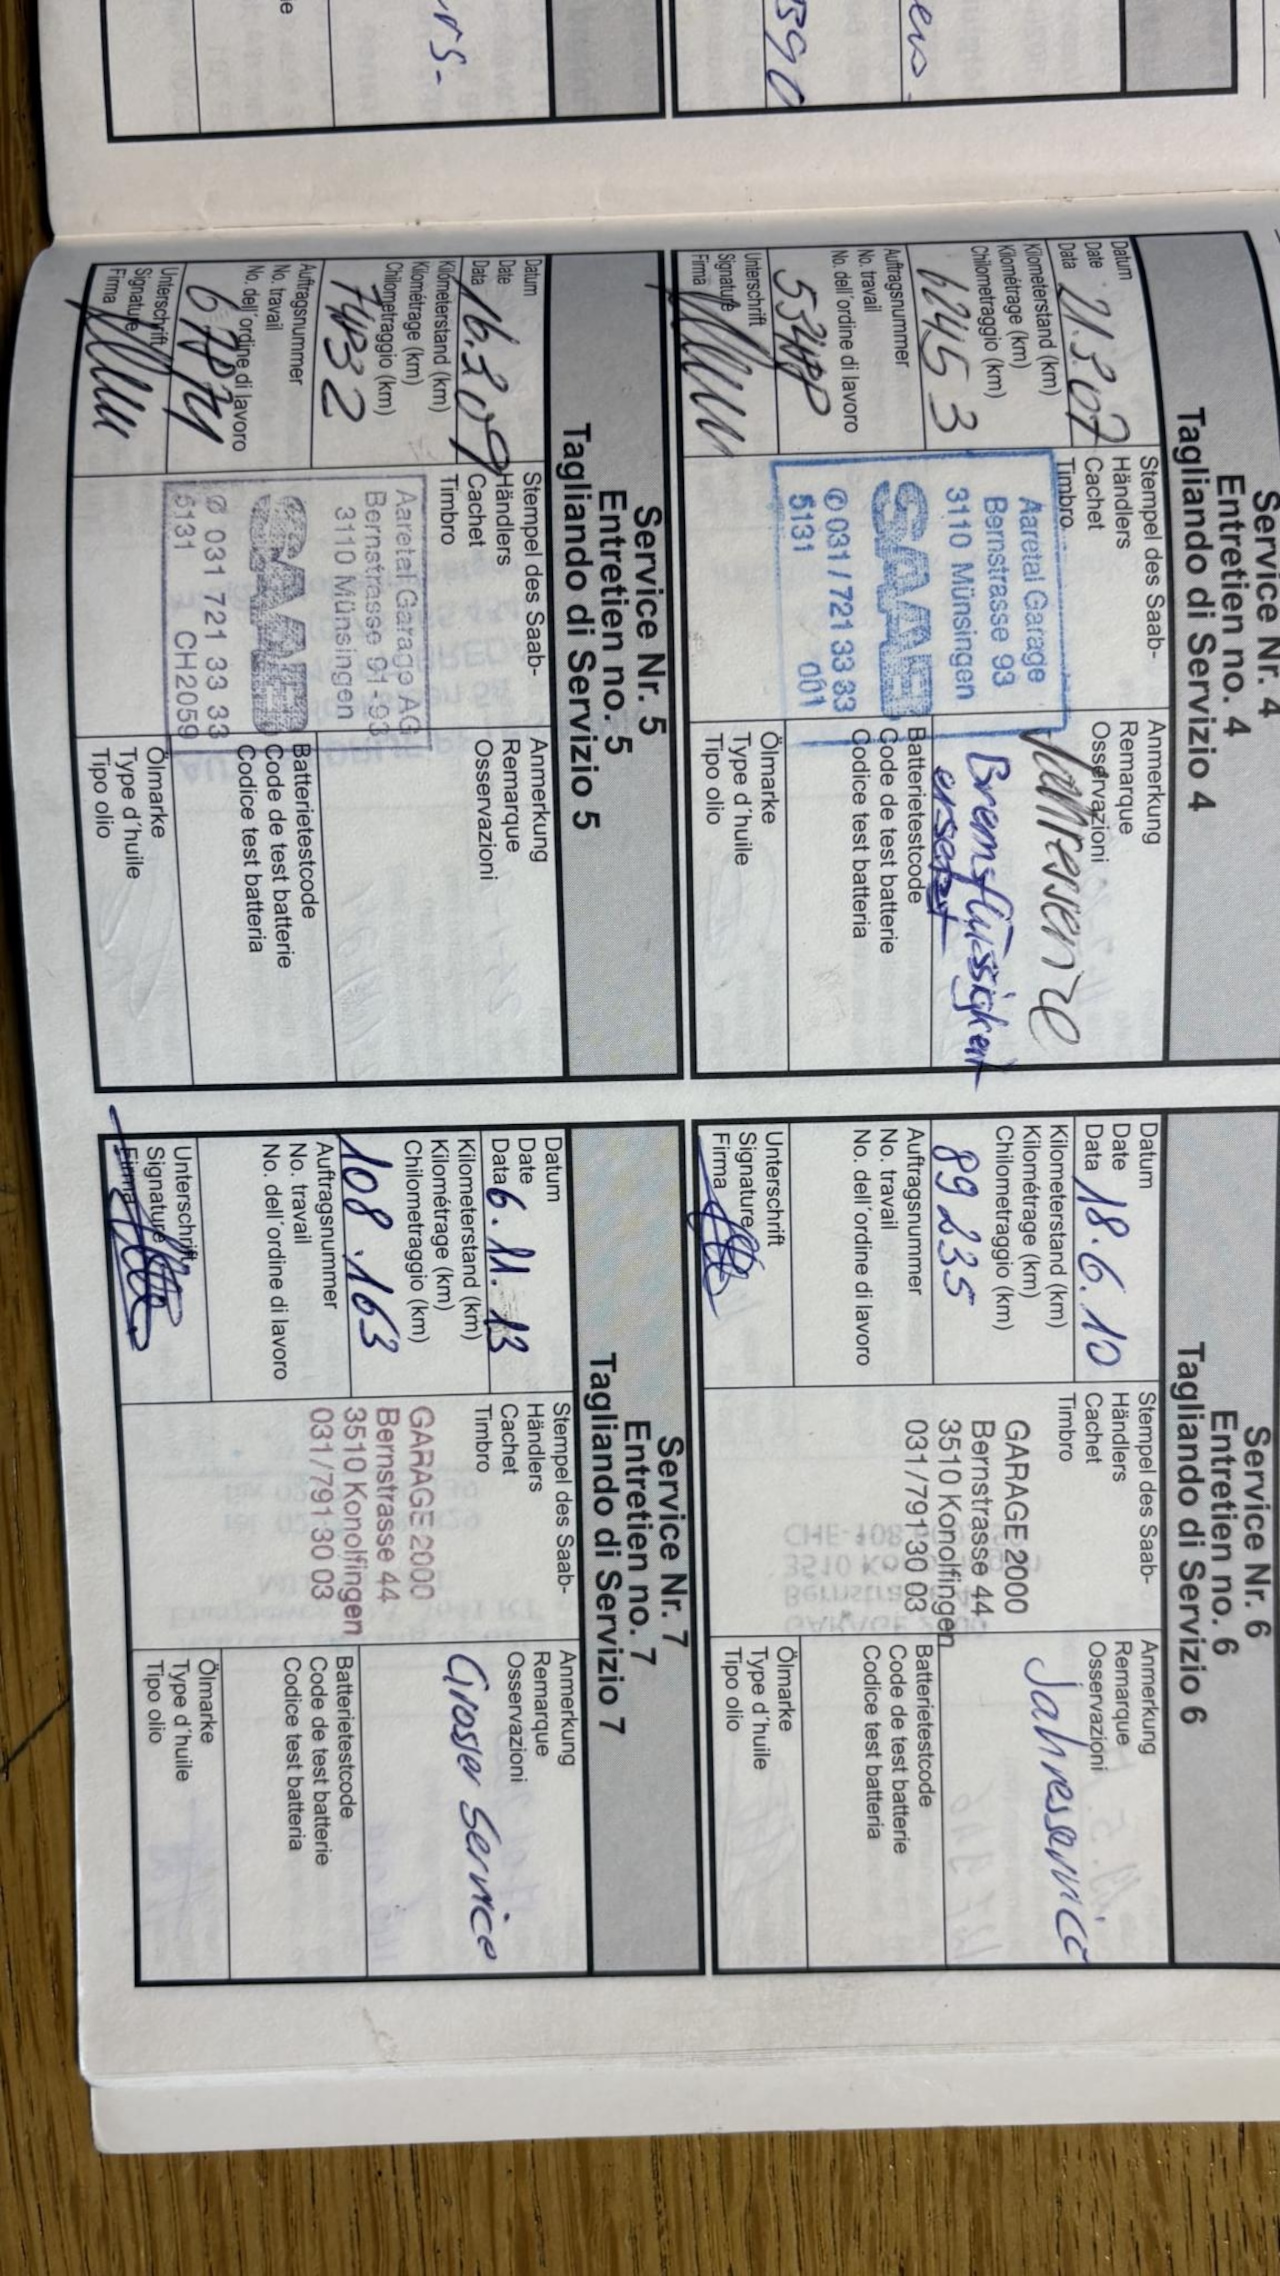 ens.
5390
rs.
Service Nr. 4
Entretien no. 4
Tagliando di Servizio 4
Datum
Date
Data 21.3.07
Kilometerstand (km)
Kilométrage (km)
Chilometraggio (km)
62453
Auftragsnummer
No. travail
No. dell´ordine di lavoro
Unterschrift
Signature
Firma
Stempel des Saab-
Händlers
Cachet
Timbro
Aaretal Garage
Bernstrasse 93
3110 Münsingen
SAAB
✆ 031 / 721 33 33
5131 001
Anmerkung
Remarque
Osservazioni
Jahresservice
Bremsflüssigkeit
ersetzt
Batterietestcode
Code de test batterie
Codice test batteria
Ölmarke
Type d´huile
Tipo olio
Service Nr. 5
Entretien no. 5
Tagliando di Servizio 5
Datum
Date
Data 16.3.09
Kilometerstand (km)
Kilométrage (km)
Chilometraggio (km)
Auftragsnummer
No. travail
No. dell´ordine di lavoro
Unterschrift
Signature
Firma
Stempel des Saab-
Händlers
Cachet
Timbro
Aaretal Garage AG
Bernstrasse 91-93
3110 Münsingen
SAAB
✆ 031 721 33 33
5131 CH2059
Anmerkung
Remarque
Osservazioni
Batterietestcode
Code de test batterie
Codice test batteria
Ölmarke
Type d´huile
Tipo olio
Service Nr. 6
Entretien no. 6
Tagliando di Servizio 6
Datum
Date
Data 18.6.10
Kilometerstand (km)
Kilométrage (km)
Chilometraggio (km)
89235
Auftragsnummer
No. travail
No. dell´ordine di lavoro
Unterschrift
Signature
Firma
Stempel des Saab-
Händlers
Cachet
Timbro
GARAGE 2000
Bernstrasse 44
3510 Konolfingen
031/791 30 03
Anmerkung
Remarque
Osservazioni
Jahresservice
Batterietestcode
Code de test batterie
Codice test batteria
Ölmarke
Type d´huile
Tipo olio
Service Nr. 7
Entretien no. 7
Tagliando di Servizio 7
Datum
Date
Data 6.11.13
Kilometerstand (km)
Kilométrage (km)
Chilometraggio (km)
108.163
Auftragsnummer
No. travail
No. dell´ordine di lavoro
Unterschrift
Signature
Firma
Stempel des Saab-
Händlers
Cachet
Timbro
GARAGE 2000
Bernstrasse 44
3510 Konolfingen
031/791 30 03
Anmerkung
Remarque
Osservazioni
Grosser Service
Batterietestcode
Code de test batterie
Codice test batteria
Ölmarke
Type d´huile
Tipo olio